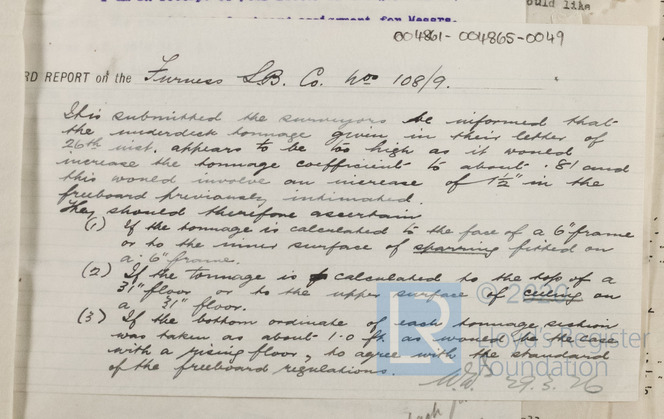 ould like
004861-004865-0049
RD REPORT on the Furness S.B. Co. Nos 108/9.
It is submitted the surveyors be informed that
the underdeck tonnage given in their letter of
26th inst. appears to be too high as it would
increase the tonnage coefficient to about .81 and
this would involve an increase of 1½" in the
freeboard previously intimated.
They should therefore ascertain
(1) If the tonnage is calculated to the face of a 6" frame
or to the inner surface of sparring fitted on
a 6" frame.
(2) If the tonnage is calculated to the top of a
31" floor or to the upper surface of ceiling on
a 31" floor.
(3) If the bottom ordinate of each tonnage section
was taken as about 1.0 ft. as would be the case
with a rising floor, to agree with the standard
of the freeboard regulations.
29.3.26
© 2020
Lloyd's Register
Foundation
LR